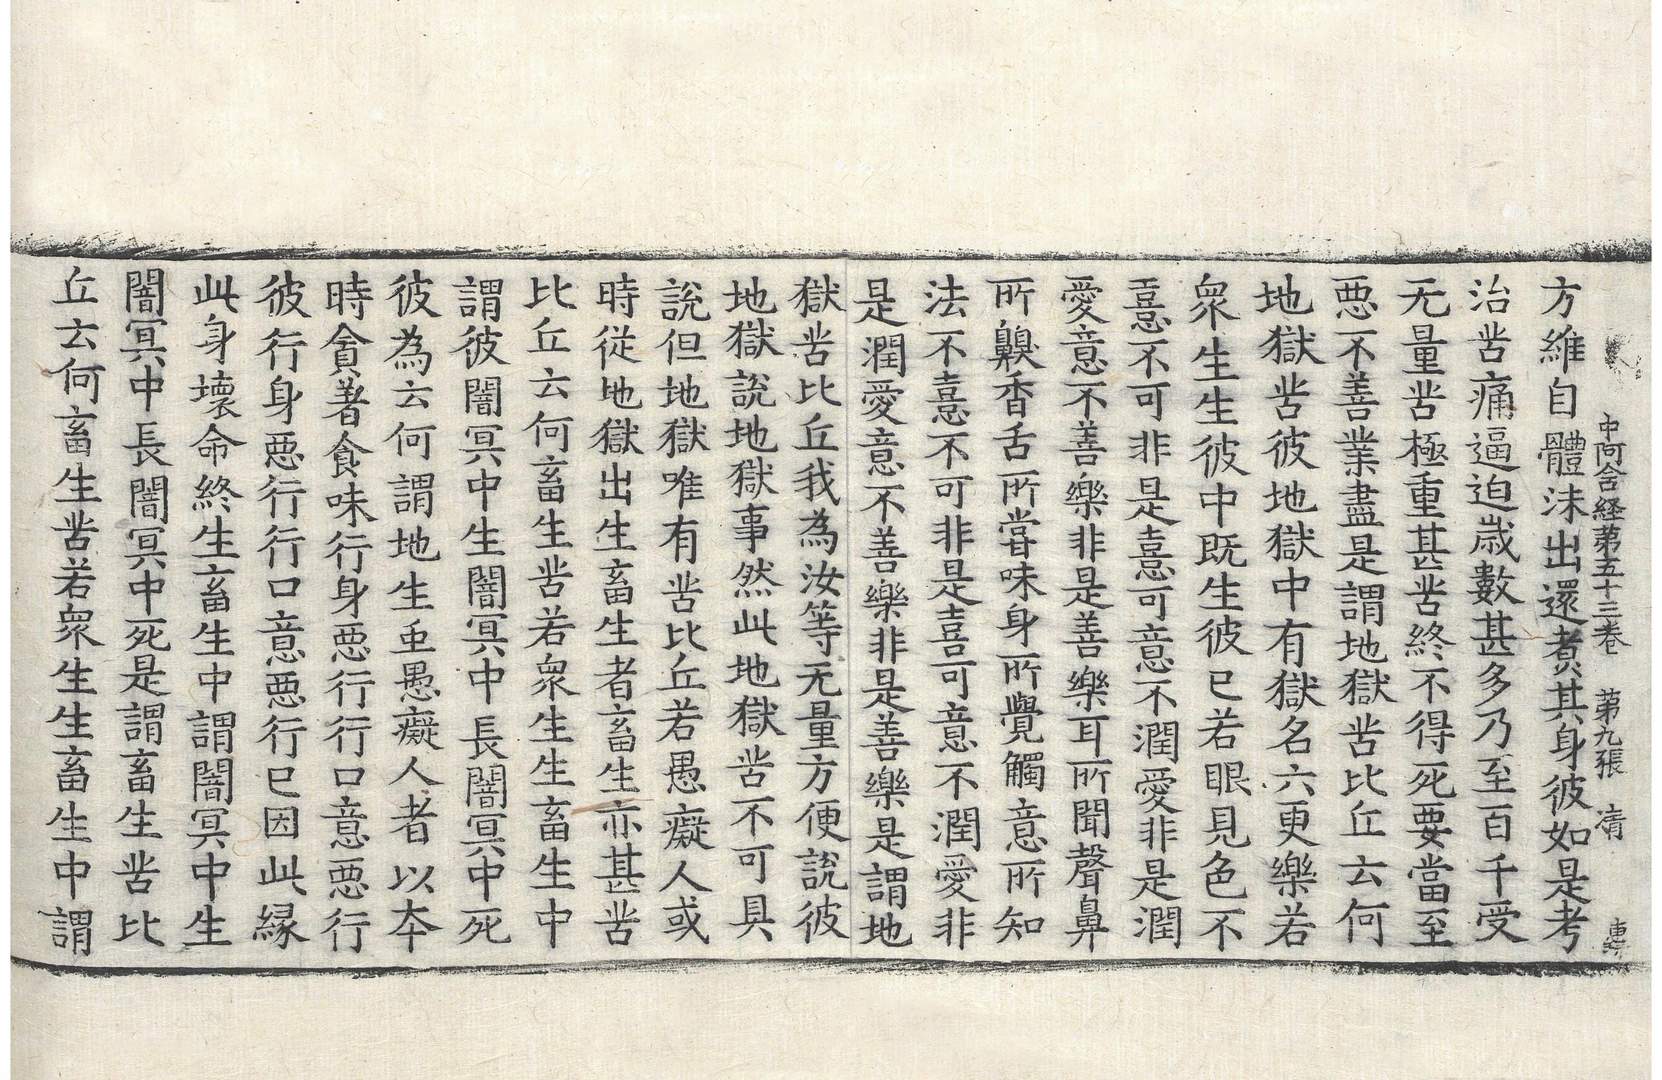 中阿含経第五十三卷　第九張　凊
方維自體沬出還煑其身彼如是考
治苦痛逼迫歳數甚多乃至百千受
无量苦極重甚苦終不得死要當至
惡不善業盡是謂地獄苦比丘云何
地獄苦彼地獄中有獄名六更樂若
衆生生彼中既生彼已若眼見色不
憙不可非是憙可意不潤愛非是潤
愛意不善樂非是善樂耳所聞聲鼻
所齅香舌所甞味身所覺觸意所知
法不憙不可非是喜可意不潤愛非
是潤愛意不善樂非是善樂是謂地
獄苦比丘我為汝等无量方便說彼
地獄說地獄事然此地獄苦不可具
說但地獄唯有苦比丘若愚癡人或
時從地獄出生畜生者畜生亦甚苦
比丘云何畜生苦若衆生生畜生中
謂彼闇冥中生闇冥中長闇冥中死
彼為云何謂地生虫愚癡人者以本
時貪著食味行身惡行行口意惡行
彼行身惡行行口意惡行已因此縁
此身壞命終生畜生中謂闇冥中生
闇冥中長闇冥中死是謂畜生苦比
丘云何畜生苦若衆生生畜生中謂